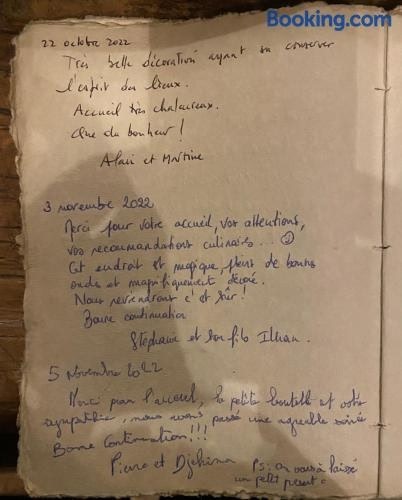 Booking.com
22 octobre 2022
Très belle décoration ayant su conserver
l'esprit des lieux.
Accueil très chaleureux.
Que du bonheur !
Alain et Martine
3 novembre 2022
Merci pour votre accueil, vos attentions,
vos recommandations culinaires... ☺
Cet endroit est magique, plein de bonnes
ondes et magnifiquement décoré.
Nous reviendrons c'est sûr !
Bonne continuation
Stéphanie et son fils Ilhan.
5 Novembre 2022
Merci pour l'accueil, la petite bouteille et votre
sympathie, nous avons passé une agréable soirée
Bonne Continuation !!!
Pierre et
PS: on vous a laissé
un petit présent